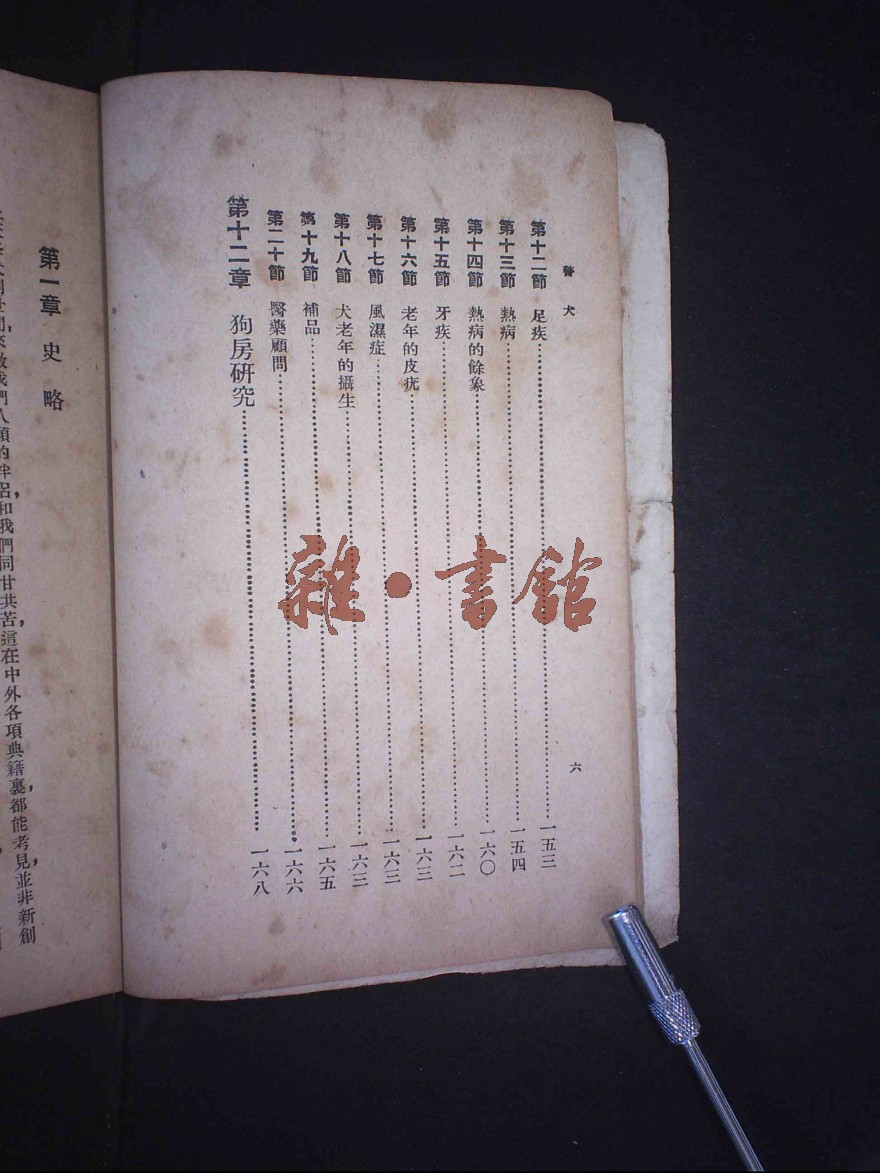 警犬
六
第十二節 足疾 一五三
第十三節 熱病 一五四
第十四節 熱病的餘象 一六〇
第十五節 牙疾 一六二
第十六節 老年的皮疣 一六三
第十七節 風濕症 一六三
第十八節 犬老年的攝生 一六三
第十九節 補品 一六五
第二十節 醫藥顧問 一六六
第十二章 狗房研究 一六八
雜·書館
第一章 史略
我們人類的伴侶,和我們同甘共苦,這在中外各項典籍裏,都能考見,並非新創